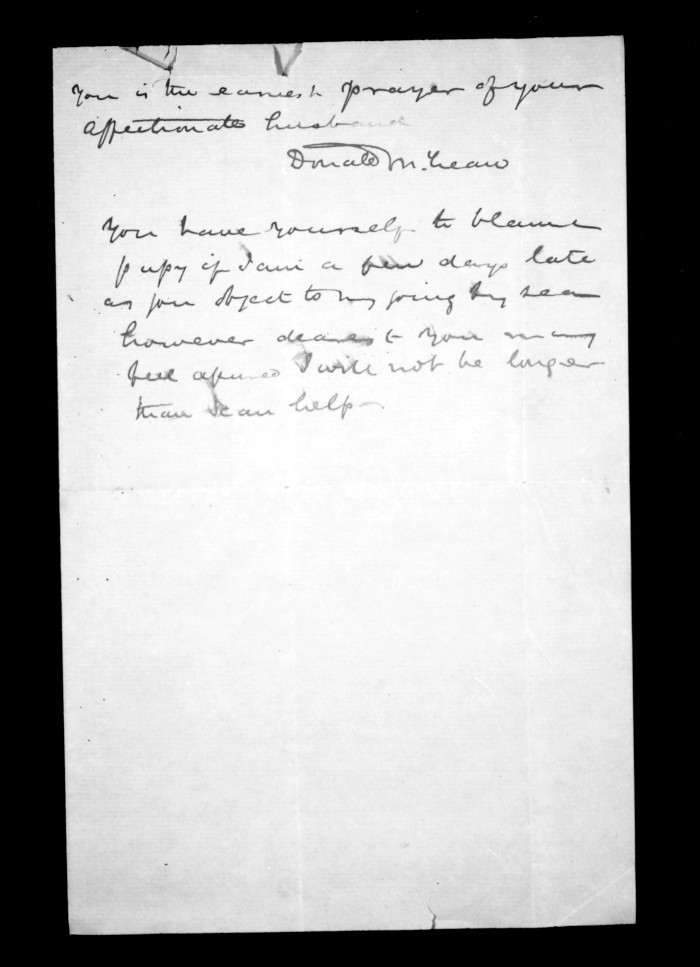 you is the earnest prayer of your
affectionate husband
Donald McLean
You have yourself to blame
pupy if I am a few days late
as you object to my going by sea
however dearest you may
feel assured I will not be longer
than I can help